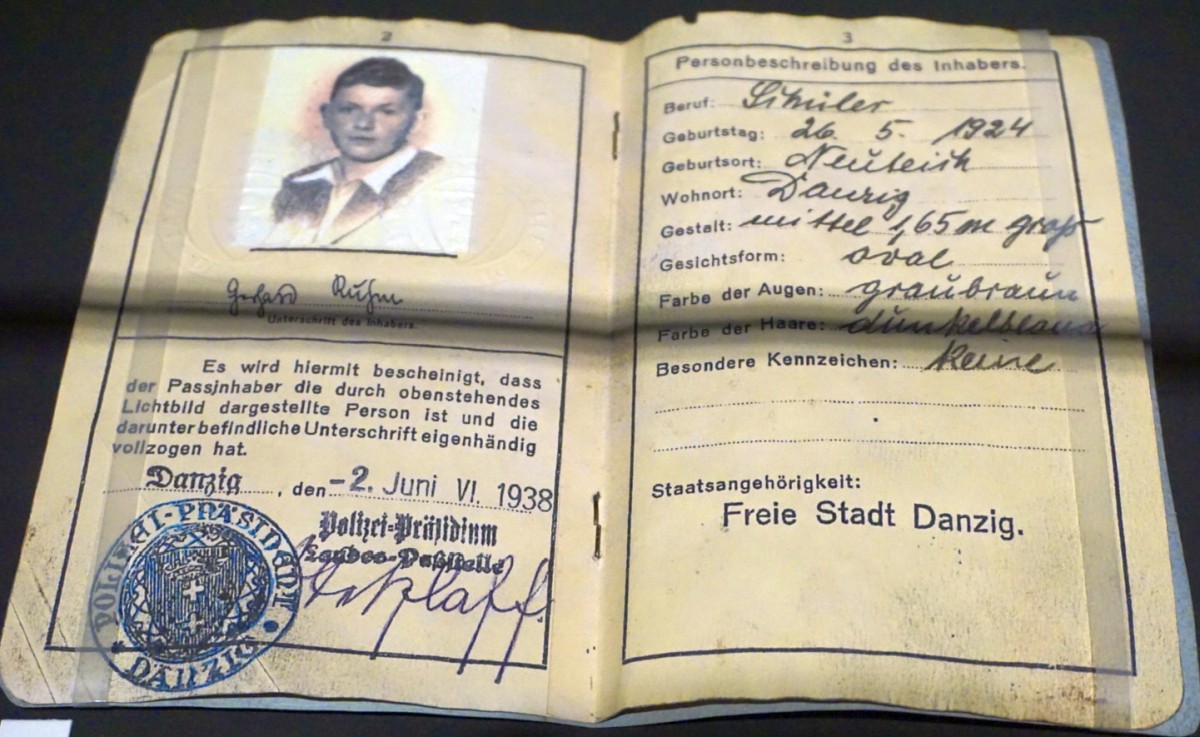 2
Gerhard Ruhm
Unterschrift des Inhabers.
Es wird hiermit bescheinigt, dass
der Passinhaber die durch obenstehendes
Lichtbild dargestellte Person ist und die
darunter befindliche Unterschrift eigenhändig
vollzogen hat.
Danzig, den -2. Juni VI. 1938
Polizei-Präsidium
Landes-Paßstelle
POLIZEI-PRÄSIDENT
DANZIG
3
Personbeschreibung des Inhabers.
Beruf: Schüler
Geburtstag: 26. 5. 1924
Geburtsort: Neuteich
Wohnort: Danzig
Gestalt: mittel 1,65 m groß
Gesichtsform: oval
Farbe der Augen: graubraun
Farbe der Haare: dunkelblond
Besondere Kennzeichen: keine
Staatsangehörigkeit:
Freie Stadt Danzig.